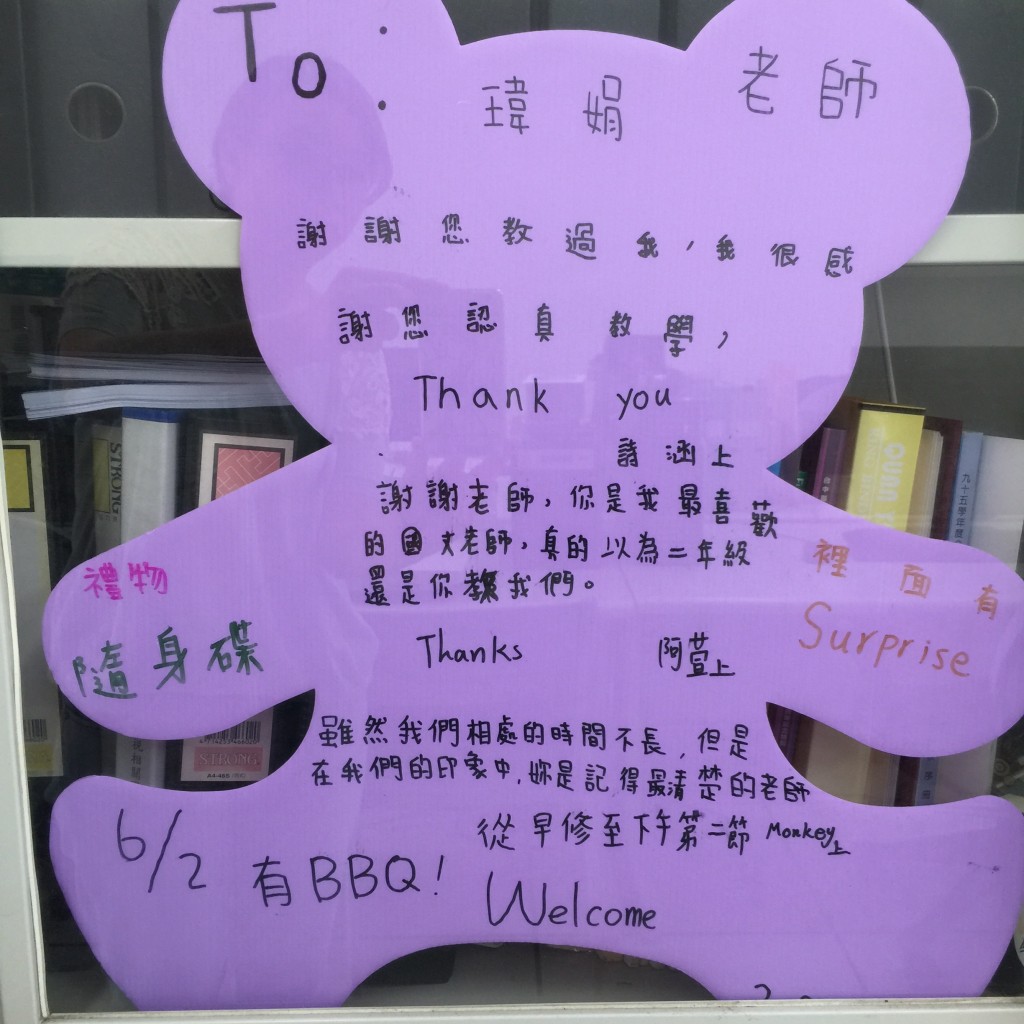 To: 瑋娟 老師
謝謝您教過我，我很感
謝您認真教學，
Thank you
詩涵上
謝謝老師，你是我最喜歡
的國文老師，真的以為二年級
還是你教我們。
Thanks 阿萱上
禮物
隨身碟
裡面有
Surprise
雖然我們相處的時間不長，但是
在我們的印象中，妳是記得最清楚的老師
從早修至下午第二節 Monkey上
6/2 有BBQ!
Welcome
STRONG
STRONG
A4-465
九十五學年度